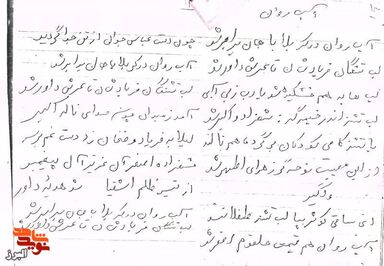 آب روان
آب روان در کربلا با جان برابر شد
لب تشنگان فریادشان تا عرش داور شد
لب ها به هم خشکیده شد یا رب ز بی آبی
لب تشنه در خیمه گه شهزاده اکبر شد
با تشنه کامی کودکان گویند هم ناله
از این مصیبت نوحه گر زهرای اطهر شد
دیگر
ای ساقی کوثر بیا لب تشنه طفلانند
آب روان هم قیمت حلقوم اصغر شد
چون دست عباس جوان از تن جدا گردید
آب روان در کربلا با جان برابر شد
لب تشنگان فریادشان تا عرش داور شد
آمد ز میدان صدای ناله اکبر
لیلا به فریاد و فغان زد دست غم بر سر
شهزاده اصغر آن عزیز آل پیغمبر
از تیر ظلم اشقیا شد هدیه داور
آب روان در کربلا با جان برابر شد
لب تشنگان فریادشان تا عرش داور شد
نوید شاهد
البرز